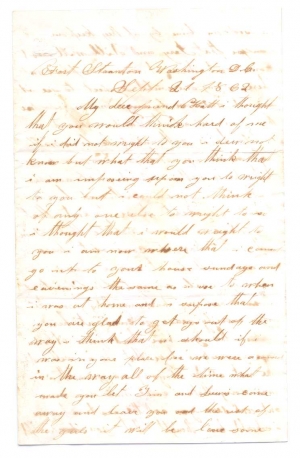 Fort Staunton Washington D.C.
1862
My dear friend I thought
that you would think hard of me
if i did not wright to you i dew not
know but what that you think that
i am imposing upon you to wright
to you but i could not think
of any one else to wright to so
i thought that i would wright to
you i am now where that i cant
go into your house sundays and
evenings the same as i use to when
i was at home and i supose that
you are glad to get me out of the
way i think that i should if i
was in your place for we were
in the way all of the time what
made you let Jim and come
away and leave you
the girls it will be lonesome